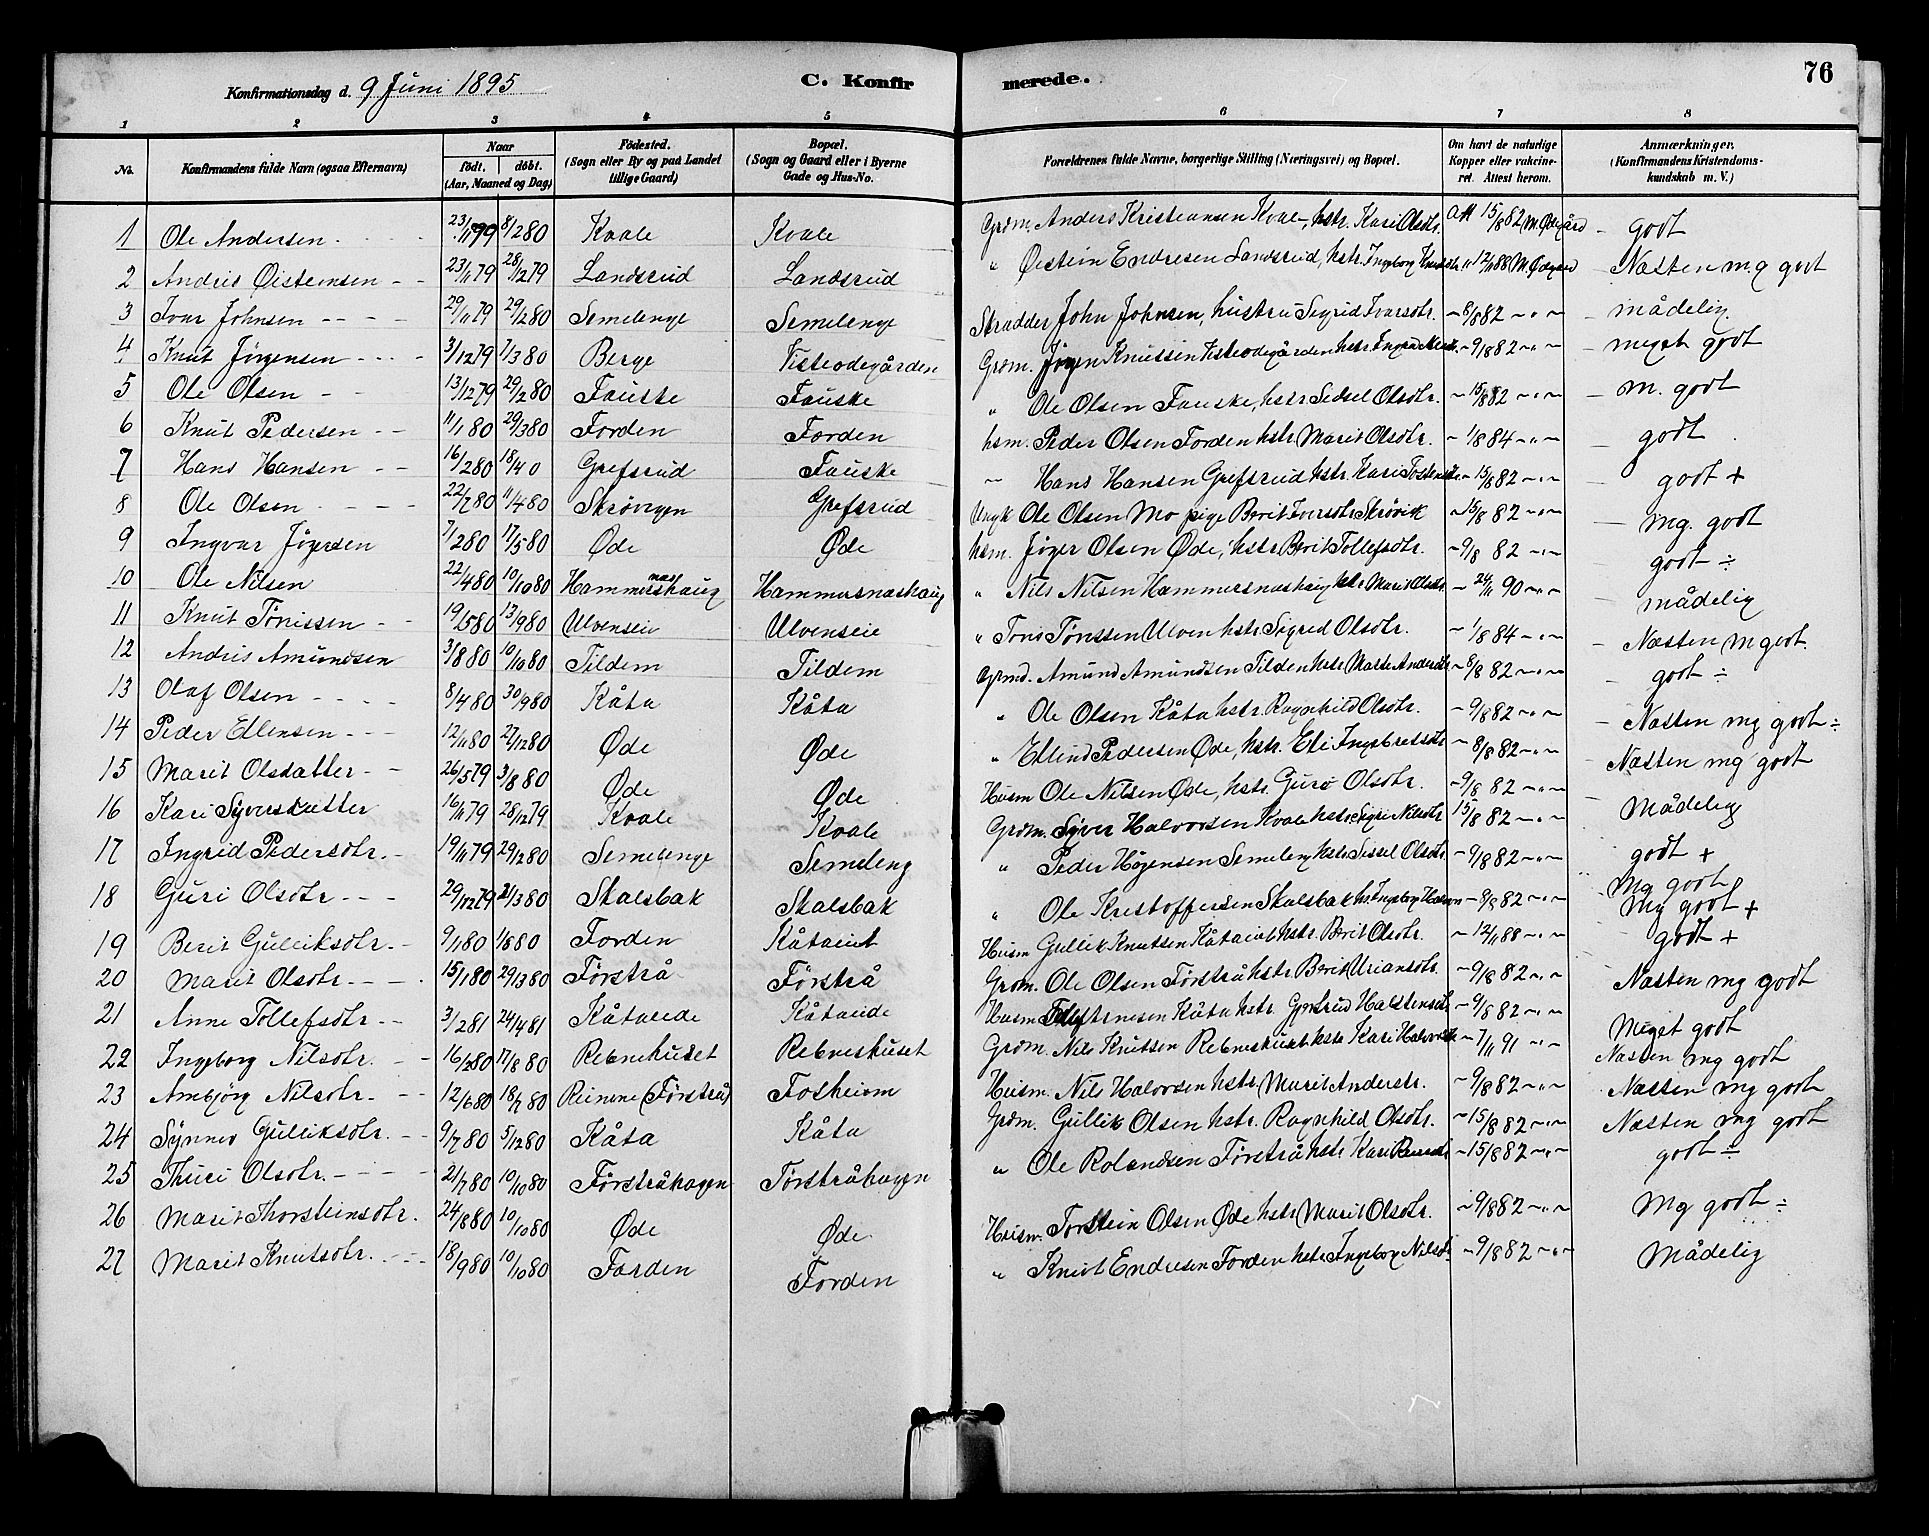 76
C. Konfirmerede.
Konfirmationsdag d. 9 Juni 1895
1 2 3 4 5 6 7 8
No. Konfirmandens fulde Navn (ogsaa Efternavn) Naar født, døbt. (Aar, Maaned og Dag) Fødested. (Sogn eller By og paa Landet tillige Gaard) Bopæl. (Sogn og Gaard eller i Byerne Gade og Hus-No. Forældrenes fulde Navne, borgerlige Stilling (Næringsvei) og Bopæl. Om havt de naturlige Kopper eller vakcineret. Attest herom. Anmærkninger. (Konfirmandens Kristendomskundskab m. V.)
1 Ole Andersen 23/1179 8/280 Kvale Kvale Grdm. Anders Kristiansen Kvale, hstr. Kari Olsdtr. Att 15/882 M. Ødegård godt
2 Andris Øisteinsen 23/1179 28/1279 Landsrud Landsrud " Øistein Endresen Landsrud, hstr. Ingeborg Knutsdtr " 12/1188 M. Ødegård Næsten mg godt
3 Ivar Johnsen 29/1179 29/280 Semelenge Semelenge Skrædder John Johnsen, hustru Sigrid Ivarsdtr. 8/882 mådelig
4 Knut Jørgensen 3/1279 7/380 Berge Visteødegården Grdm. Jørgen Knutsen Visteødegården hstr. 9/882 meget godt
5 Ole Olsen 13/1279 29/280 Fauske Fauske " Ole Olsen Fauske, hstr Sidsel Olsdtr. 15/882 m. godt
6 Knut Pedersen 11/180 29/380 Forden Forden hsm. Peder Olsen Forden hstr. Marit Olsdtr. 1/884 godt
7 Hans Hansen 16/280 18/40 Grefsrud Fauske " Hans Hansen Grefsrud hstr. Kari 15/882 godt +
8 Ole Olsen 22/280 11/480 Skrøvigen Grefsrud Ungk Ole Olsen Mo pige Berit Ivarsdtr Skrøvik 15/882 mg. godt
9 Ingvar Jøgersen 7/280 17/580 Øde Øde hsm. Jøger Olsen Øde, hstr Berit Tollefsdtr. 9/882 godt ÷
10 Ole Nilsen 22/480 10/1080 Hammersnashaug Hammersnashaug " Nils Nilsen Hammersnashaug hstr Marit Olsdtr. 24/1190 mådelig
11 Knut Tønissen 19/580 13/980 Ulvenseie Ulvenseie " Tønssen Ulven hstr. Sigrid Olsdtr. 1/884 Næsten m godt.
12 Andris Amundsen 3/880 10/1080 Tildem Tildem Grmd. Amund Amundsen Tilden hstr Marte Andersdtr 8/882 godt ÷
13 Olaf Olsen 8/480 30/980 Kåta Kåta " Ole Olsen Kåta hstr. Ragnhild Olsdtr. 9/882 Næsten mg godt ÷
14 Peder Ellensen 12/1180 27/1280 Øde Øde " Ellend Pedersen Øde, hstr. Eli Ingebretsdtr 8/882 Næsten mg godt
15 Marit Olsdatter 26/579 3/880 Øde Øde Husm Ole Nilsen Øde, hstr. Guro Olsdtr. 9/882 Mådelig
16 Kari Syversdatter 16/1179 28/1279 Kvale Kvale Grdm. Syver Halvorsen Kvale hstr. Sigri Nilsdtr 15/882 godt +
17 Ingrid Pedersdtr. 19/1179 29/280 Semelenge Semeleng " Peder Høgensen Semeleng hstr. Sissel Olsdtr 9/882 mg godt
18 Guri Olsdtr 29/1279 21/380 Skalsbak Skalsbak " Ole Kristoffersen Skalsbak hs. Ingeborg 9/882 Mg godt +
19 Berit Gulliksdtr. 9/180 1/880 Forden Kåtaeiet Husm Gullik Knutsen Kåtaeiet hstr. Berit Olsdtr. 12/1188 godt +
20 Marit Olsdtr. 15/180 29/380 Førstrå Førstrå Grdm. Ole Olsen Førstrå hstr Berit Uriansdtr. 9/882 Næsten mg godt
21 Anne Tollefsdtr. 3/281 24/481 Kåtaeide Kåtaeide Husm Kåta hstr Gjertrud Halstensdtr 9/882 Meget godt
22 Ingeborg Nilsdtr. 16/280 17/880 Rebnehuset Rebneshuset Grdm. Nils Knutsen Rebneshuset hstr Kari Halvorsdtr 7/1191 Næsten mg godt
23 Ambjørg Nilsdtr. 12/680 18/780 Reinene (Førstrå) Fosheim Husm. Nils Halvorsen hstr. Marit Anderstr. 9/882 Næsten mg godt
24 Synnev Gulliksdtr. 9/780 5/1280 Kåta Kåta Grdm. Gullik Olsen hstr. Ragnhild Olsdtr. 15/882 Næsten mg godt
25 Thuri Olsdtr. 21/780 10/1080 Førstråhagen Førstråhagen " Ole Rolandsen Førstrå hstr Kari 15/882 godt ÷
26 Marit Thorsteinsdtr. 24/880 10/1080 Øde Øde Husm. Torstein Olsen Øde hstr Marit Olsdtr. 9/882 Mg godt ÷
27 Marit Knutsdtr. 18/980 10/1080 Forden Forden " Knut Endresen Forden hstr Ingeborg Nilsdtr 9/882 Mådelig